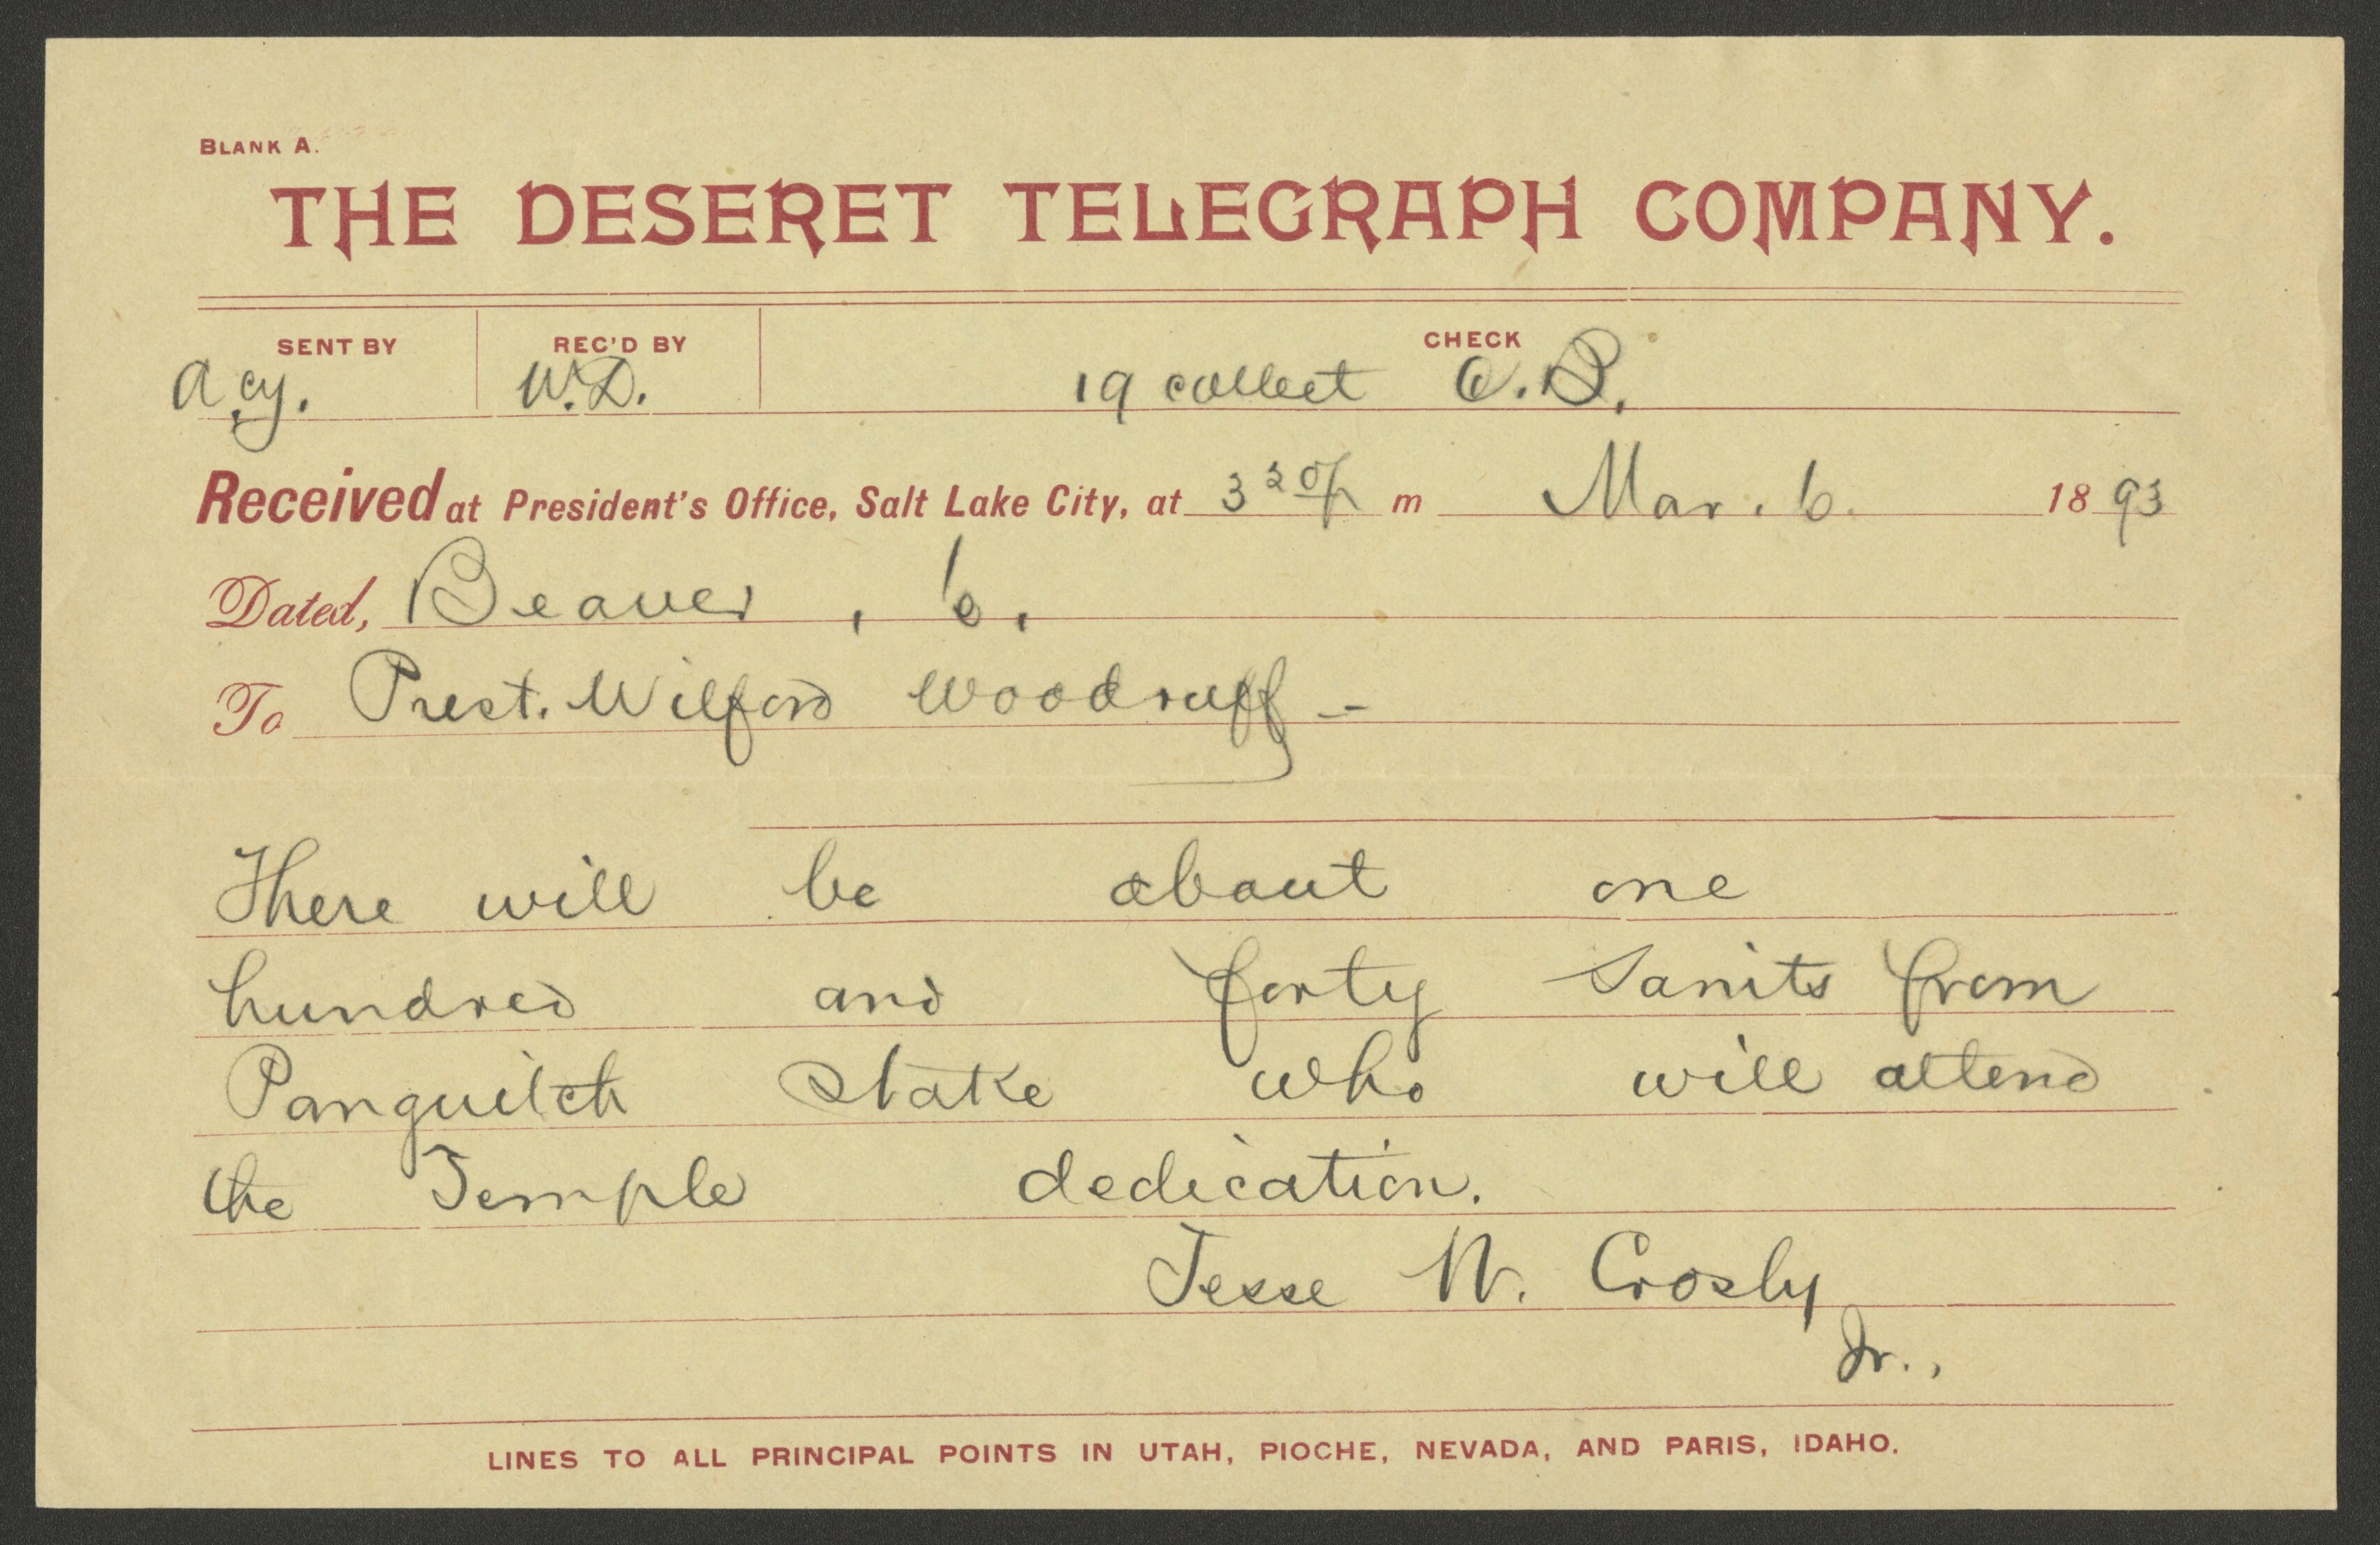 BLANK A.
THE DESERET TELEGRAPH COMPANY.
SENT BY REC'D BY CHECK
a cy. W.D. 19 collect O.B.
Received at President's Office, Salt Lake City, at 3 20 p m Mar. 6. 1893
Dated, Beaver, 6.
To Prest. Wilford Woodruff -
There will be about one
hundred and forty Sanits from
Panguitch Stake who will attend
the Temple dedication.
Jesse W. Crosby
Jr.,
LINES TO ALL PRINCIPAL POINTS IN UTAH, PIOCHE, NEVADA, AND PARIS, IDAHO.